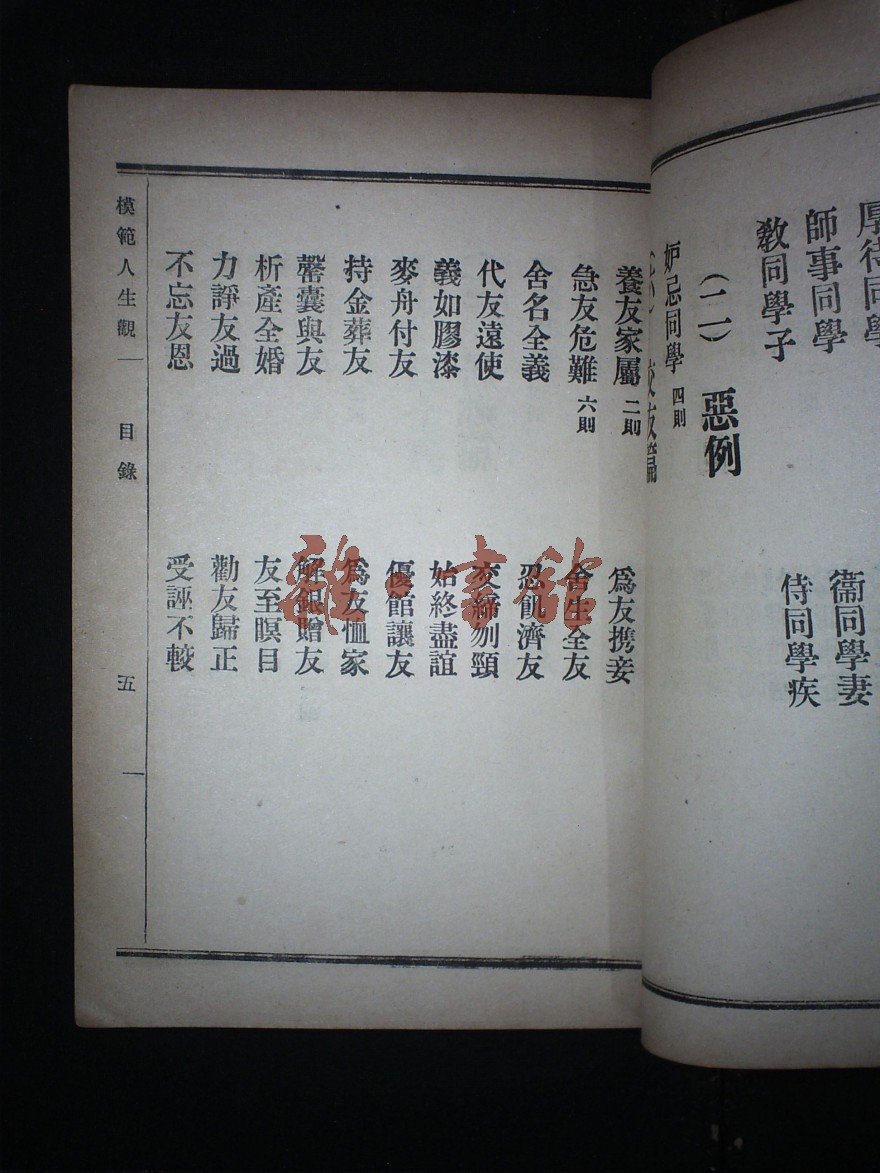 厚待同學
師事同學
衞同學妻
敎同學子
侍同學疾
（二）　惡例
妒忌同學 四則
交友篇
養友家屬 二則
爲友携妾
急友危難 六則
舍生全友
舍名全義
忍飢濟友
代友遠使
交締刎頸
義如膠漆
始終盡誼
麥舟付友
優館讓友
持金葬友
爲友恤家
罄囊與友
解銀贈友
析產全婚
友至瞑目
力諍友過
勸友歸正
不忘友恩
受誣不較
模範人生觀　目錄　五
雜·書館